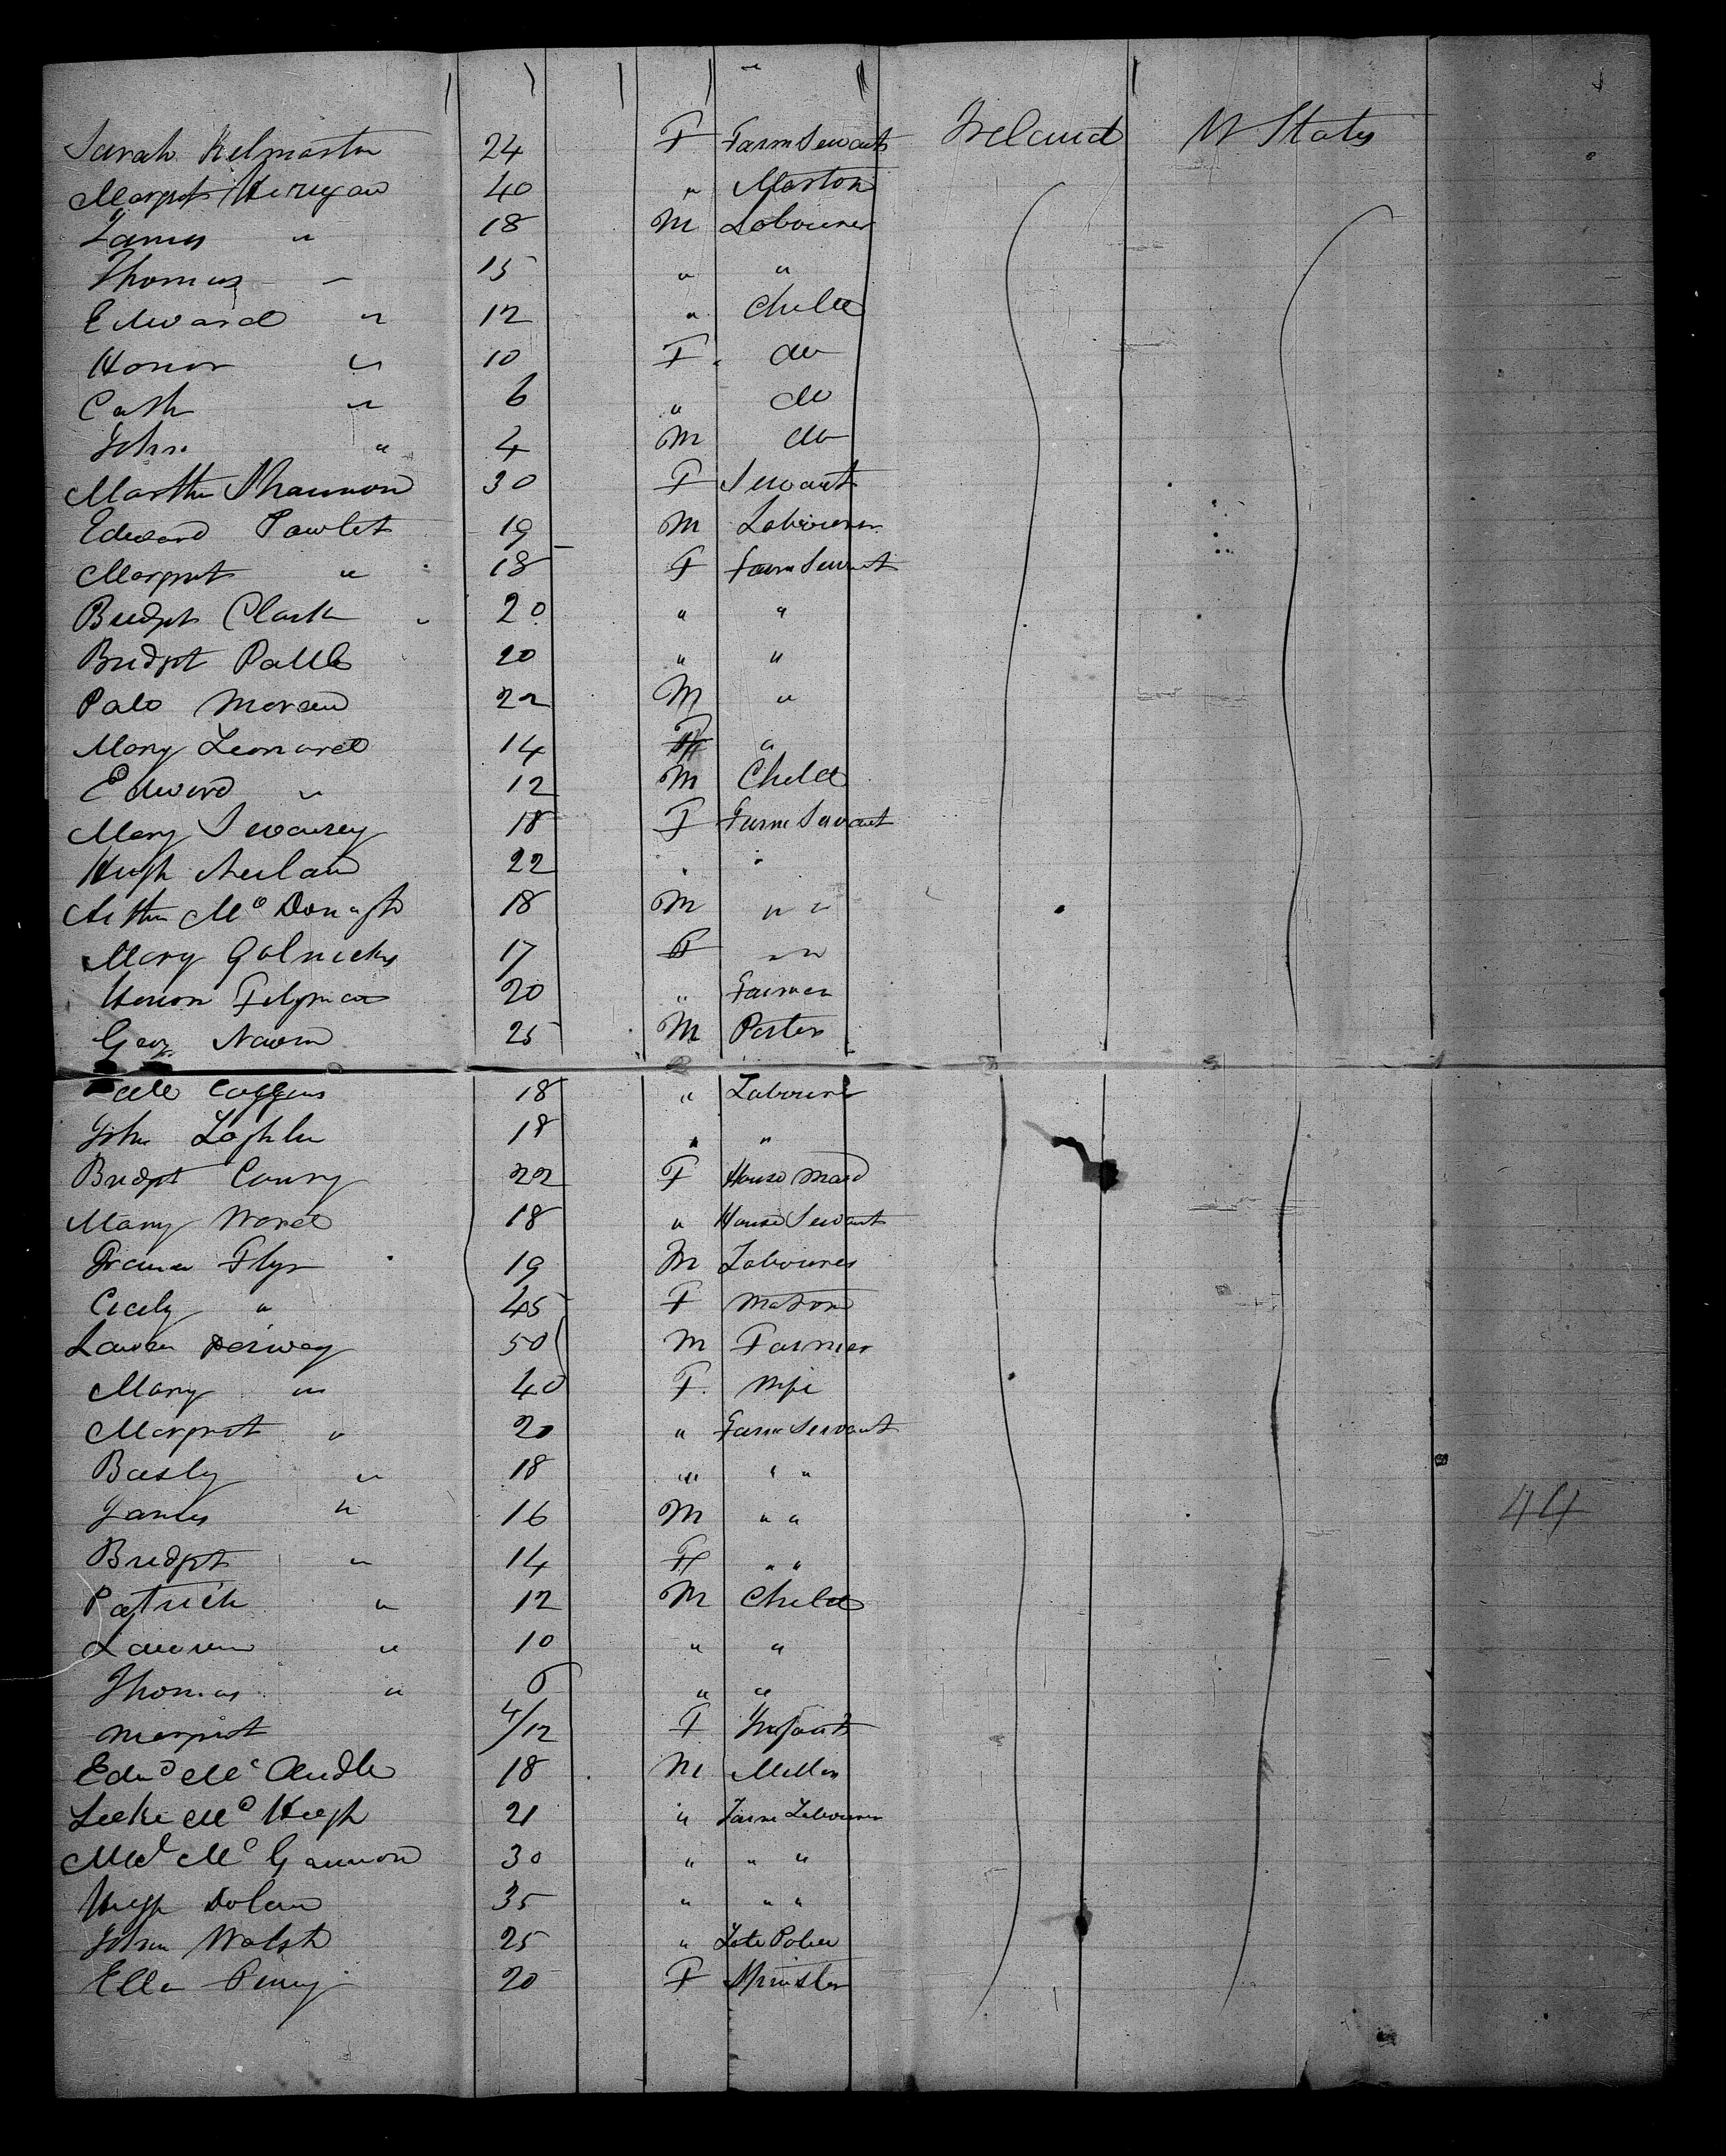 Sarah Kelmartin 24 F Farm Servant Ireland U States
Margret Kerrigan 40 " Matron
James " 18 M Labourer
Thomas " 15 " "
Edward " 12 " Child
Honor " 10 F do
Cath " 6 " do
John " 4 M do
Martha Shannon 30 F Servant
Edward Pawlet 19 M Labourer
Margret " 18 F Farm Servant
Bridget Clark 20 " "
Bridget 20 " "
Moran 22 M "
Mary Leonard 14 F "
Edward " 12 M Child
Mary 18 F Farm Servant
Hugh 22 " "
Arthur Mc Donagh 18 M " "
Mary 17 F " "
Honor 20 " Farmer
25 M Porter
Coggins 18 " Labourer
John 18 " "
Bridget Conry 22 F House Maid
Mary Ward 18 " House Servant
Flyn 19 M Labourer
Cicely " 45 F Matron
50 M Farmer
Mary " 40 F Wife
Margret " 20 " Farm Servant
" 18 " " "
James " 16 M " "
Bridget " 14 F " "
Patrick " 12 M Child
" 10 " "
Thomas " 6 " "
Margret 4/12 F Infant
Edwd Mc Ardle 18 M Miller 44
Luke Mc Hugh 21 " Farm Labourer
Mc Gannon 30 " " "
Hugh Dolan 35 " " "
John Walsh 25 " Late Police
Ellen Penny 20 F Spinster